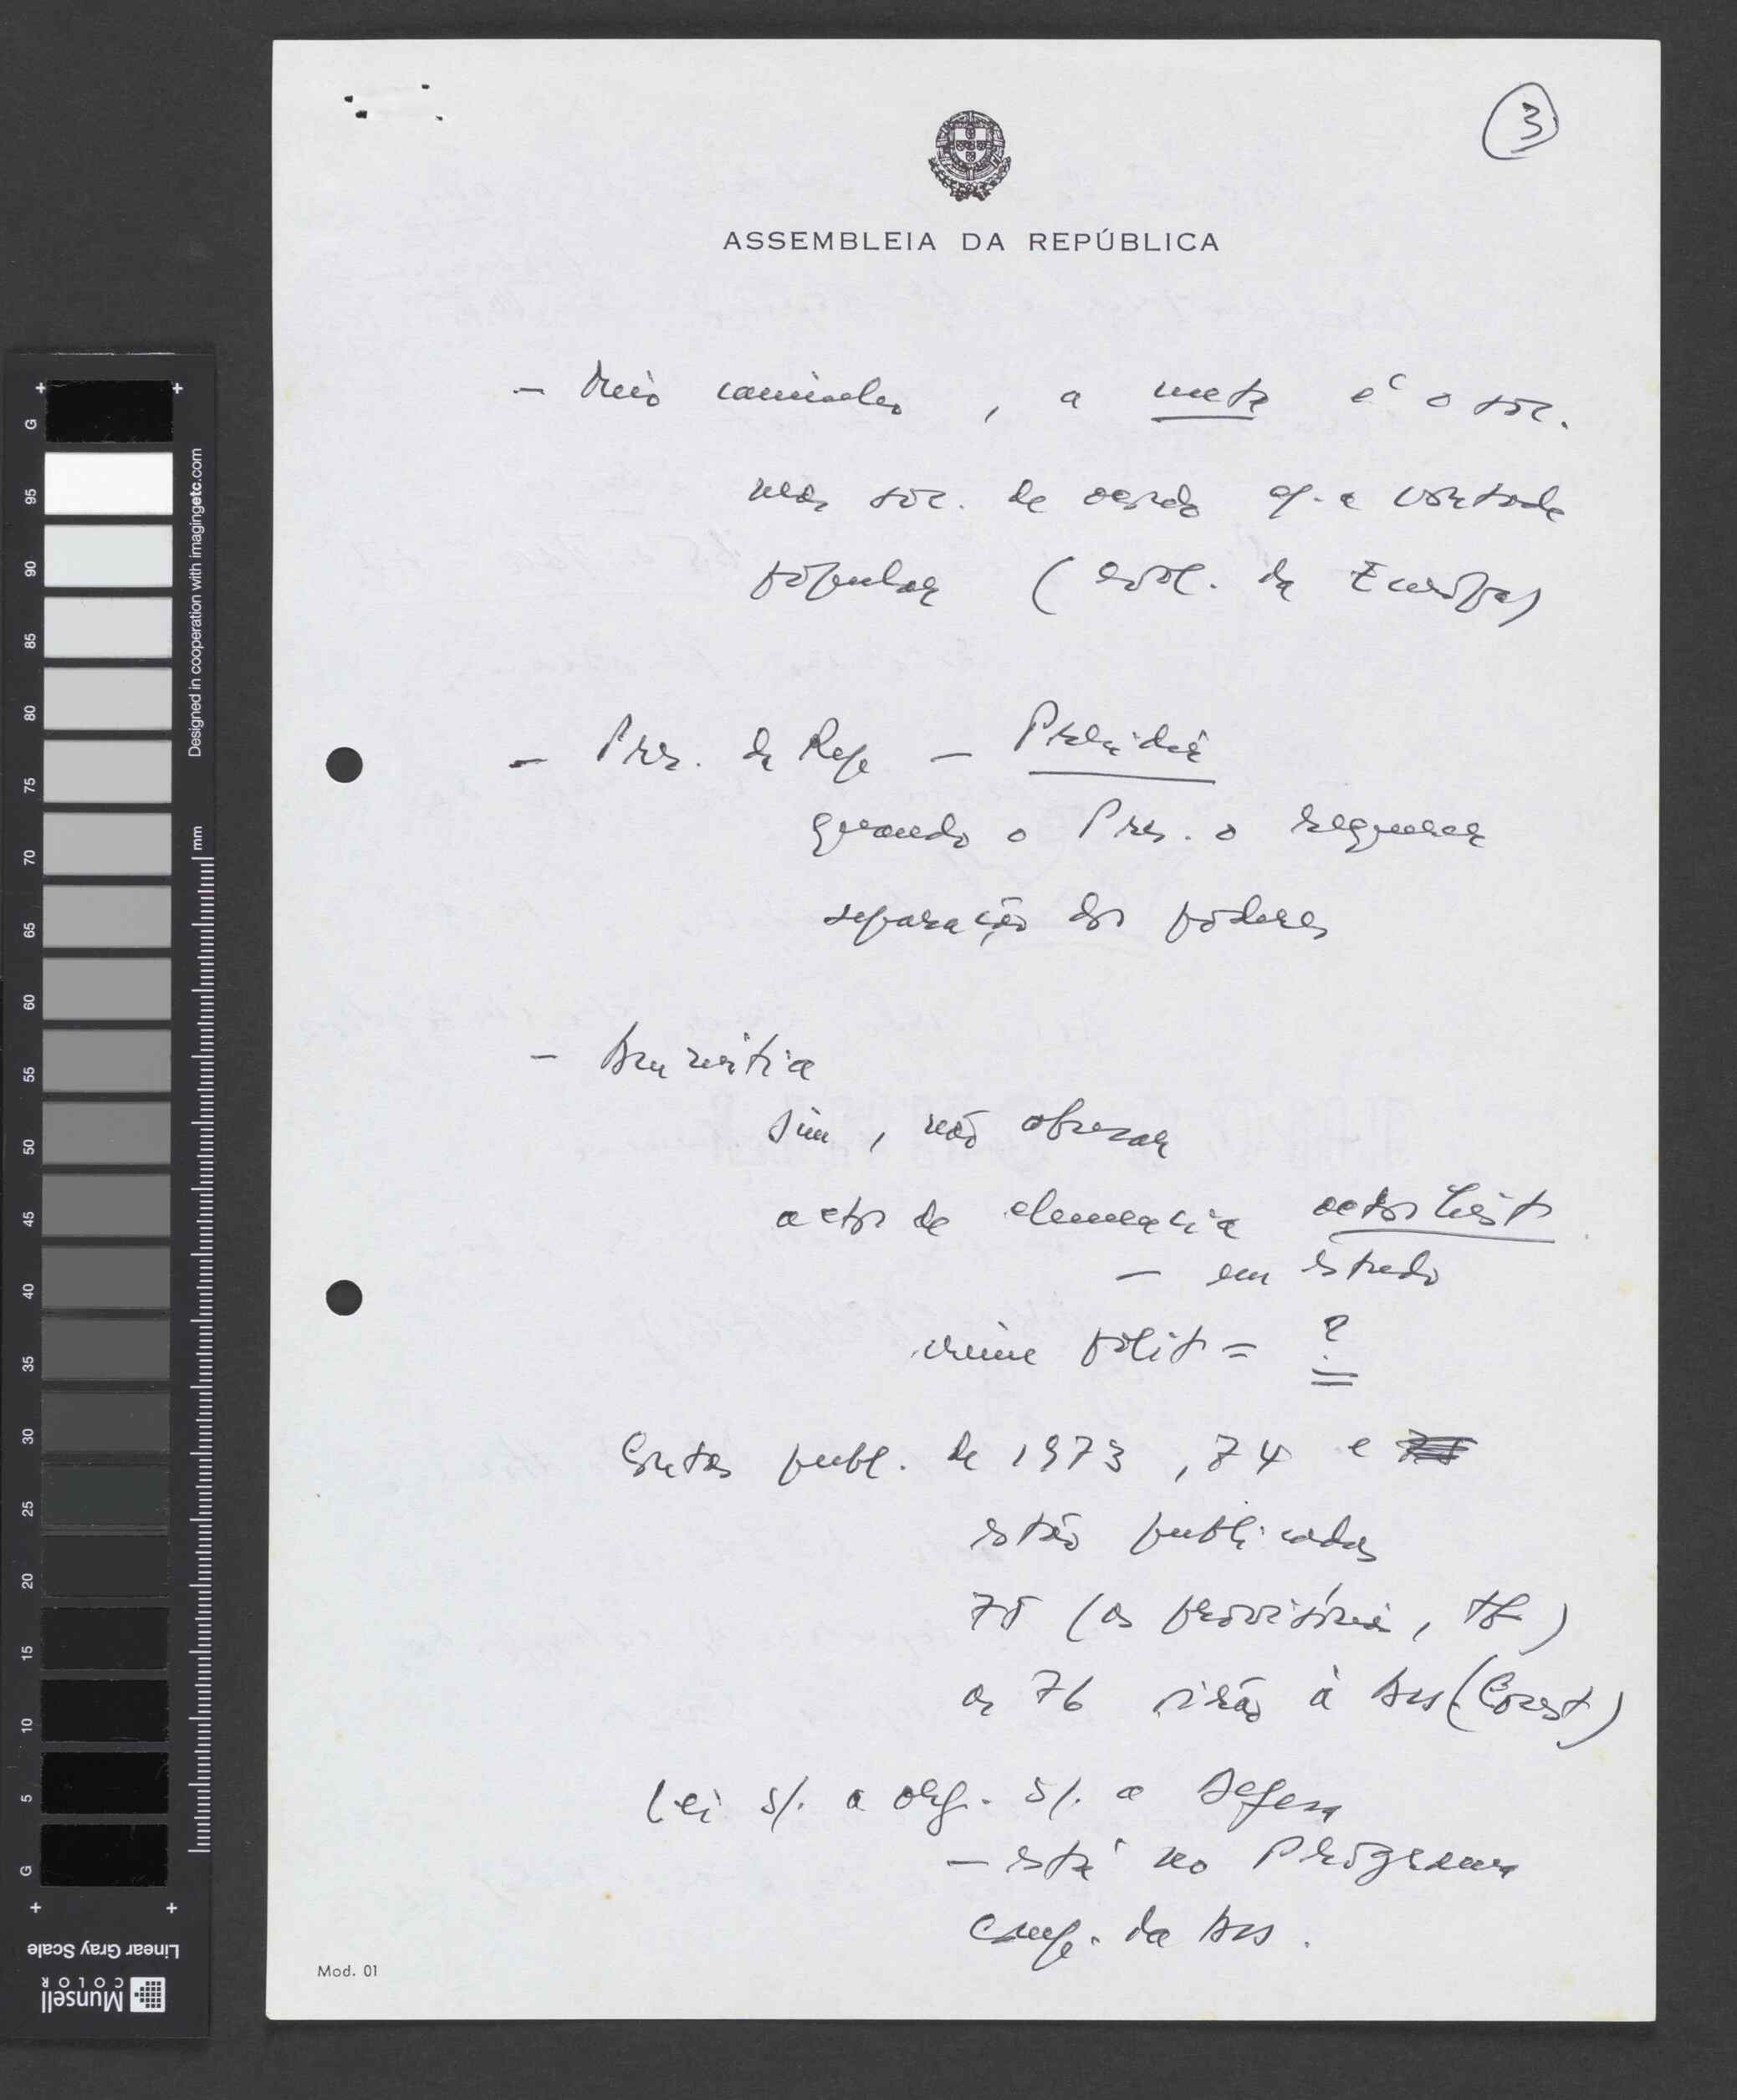 3
ASSEMBLEIA DA REPÚBLICA
— Meio caminho, a meta é o soc.
mas soc. de acordo c/. a vontade
popular (evol. da Europa)
— Pres. da Rep —
quando o Pres. o requerer
separação dos poderes
— Amnistia
sim, não
actos de clemencia
— em estudo
crime polit = ?
Contas publ. de 1973, 74 e
estão publicadas
75 (as provisórias, tb)
as 76 virão à Ass (Const)
Lei s/. a org. s/. a Defesa
— está no Programa
comp. da Ass.
Mod. 01
G
95
90
85
80
75
70
65
60
55
50
45
40
35
30
25
20
15
10
5
G
mm
Designed in cooperation with imagingetc.com
Linear Gray Scale
Munsell
COLOR